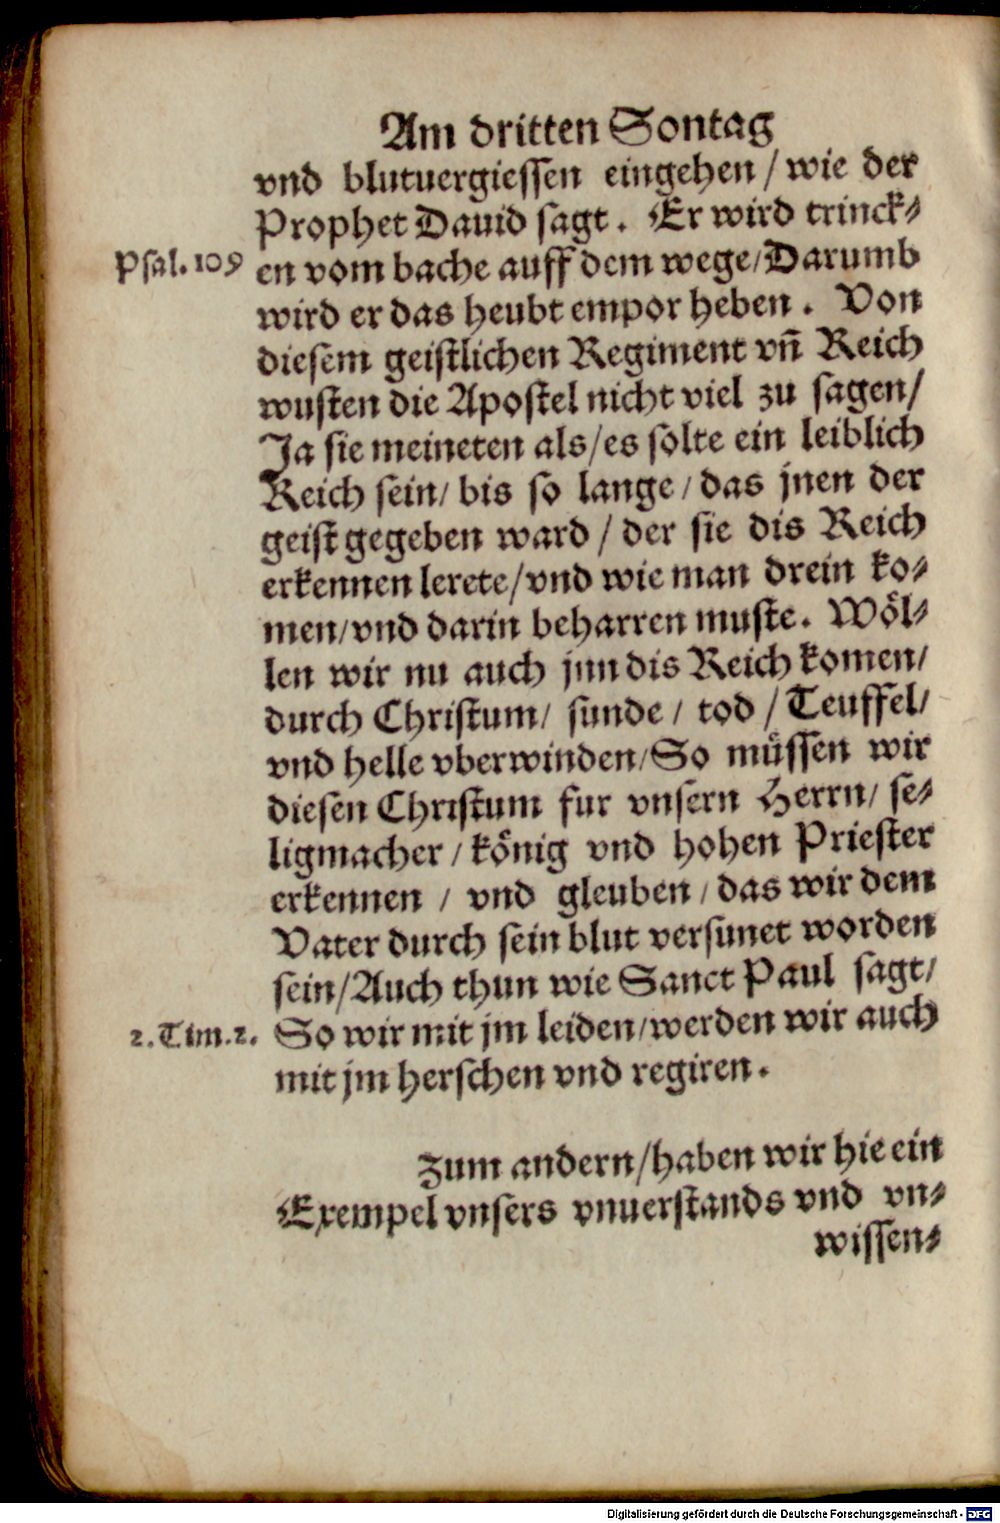 Am dritten Sontag
vnd blutuergiessen eingehen / wie der
Prophet Dauid sagt. Er wird trinck⸗
Psal. 109 en vom bache auff dem wege / Darumb
wird er das heubt empor heben. Von
diesem geistlichen Regiment vñ Reich
wusten die Apostel nicht viel zu sagen /
Ja sie meineten als / es solte ein leiblich
Reich sein / bis so lange / das jnen der
geist gegeben ward / der sie dis Reich
erkennen lerete / vnd wie man drein ko⸗
men / vnd darin beharren muste. Wöl⸗
len wir nu auch jnn dis Reich komen /
durch Christum / sunde / tod / Teuffel /
vnd helle vberwinden / So müssen wir
diesen Christum fur vnsern Herrn / se⸗
ligmacher / könig vnd hohen Priester
erkennen / vnd gleuben / das wir dem
Vater durch sein blut versunet worden
sein / Auch thun wie Sanct Paul sagt /
2. Tim. 2. So wir mit jm leiden / werden wir auch
mit jm herschen vnd regiren.
Zum andern / haben wir hie ein
Exempel vnsers vnuerstands vnd vn⸗
wissen⸗
Digitalisierung gefördert durch die Deutsche Forschungsgemeinschaft - DFG